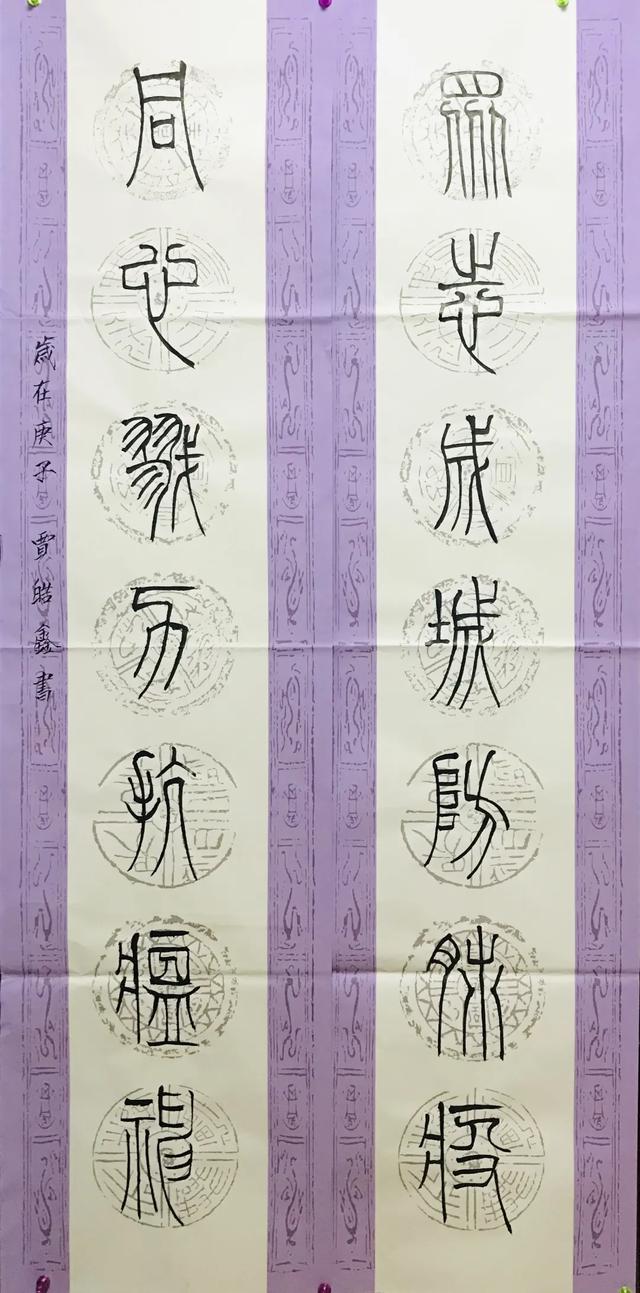 眾志成城防肺疫
同心戮力抗瘟神
歲在庚子 賈皓鑫書